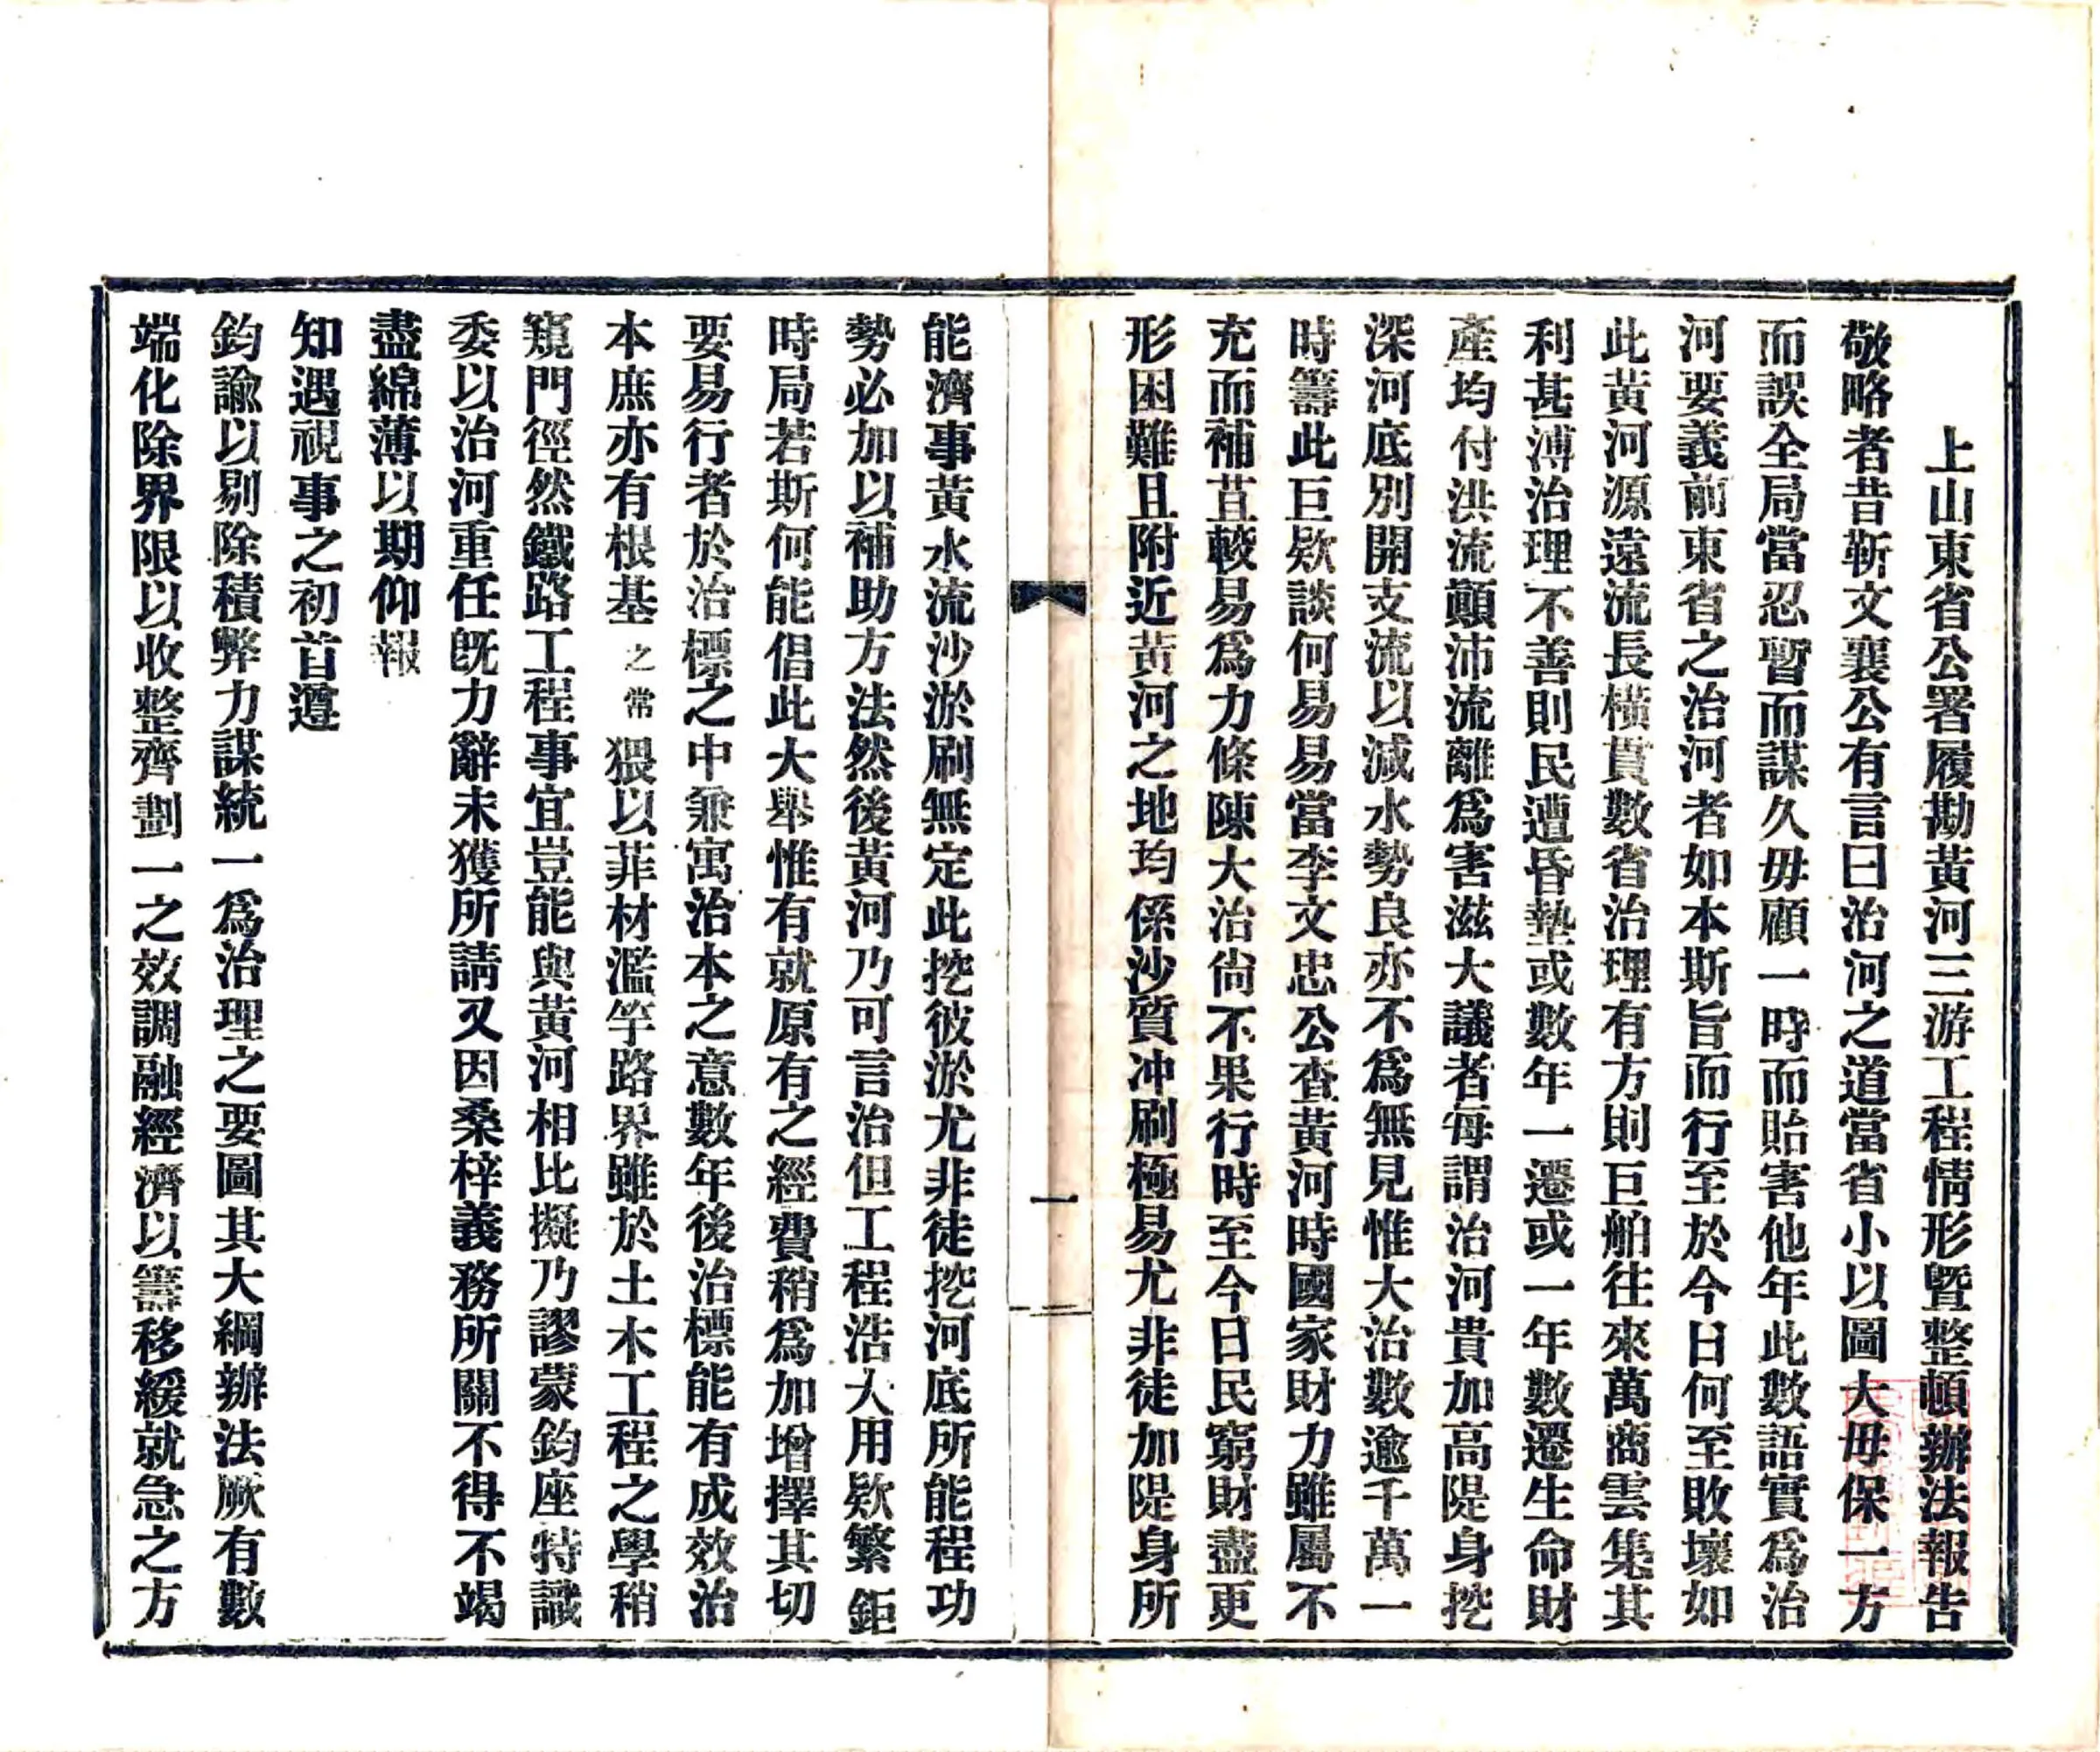 上山東省公署履勘黃河三游工程情形暨整頓辦法報告
敬略者昔靳文襄公有言曰治河之道當省小以圖大毋保一方
而誤全局當忍暫而謀久毋顧一時而貽害他年此數語實爲治
河要義前東省之治河者如本斯旨而行至於今日何至敗壞如
此黃河源遠流長橫貫數省治理有方則巨舶往來萬商雲集其
利甚溥治理不善則民遭昏墊或數年一遷或一年數遷生命財
產均付洪流顚沛流離爲害滋大議者每謂治河貴加高隄身挖
深河底別開支流以減水勢良亦不爲無見惟大治數逾千萬一
時籌此巨欵談何易易當李文忠公查黃河時國家財力雖屬不
充而補苴較易爲力條陳大治尙不果行時至今日民窮財盡更
形困難且附近黃河之地均係沙質冲刷極易尤非徒加隄身所
一
能濟事黃水流沙淤刷無定此挖彼淤尤非徒挖河底所能程功
勢必加以補助方法然後黃河乃可言治但工程浩大用欵繁鉅
時局若斯何能倡此大舉惟有就原有之經費稍爲加增擇其切
要易行者於治標之中兼寓治本之意數年後治標能有成效治
本庶亦有根基之常猥以菲材濫竽路界雖於土木工程之學稍
窺門徑然鐵路工程事宜豈能與黃河相比擬乃謬蒙鈞座特識
委以治河重任旣力辭未獲所請又因桑梓義務所關不得不竭
盡綿薄以期仰報
知遇視事之初首遵
鈞諭以剔除積弊力謀統一爲治理之要圖其大綱辦法厥有數
端化除界限以收整齊劃一之效調融經濟以籌移緩就急之方